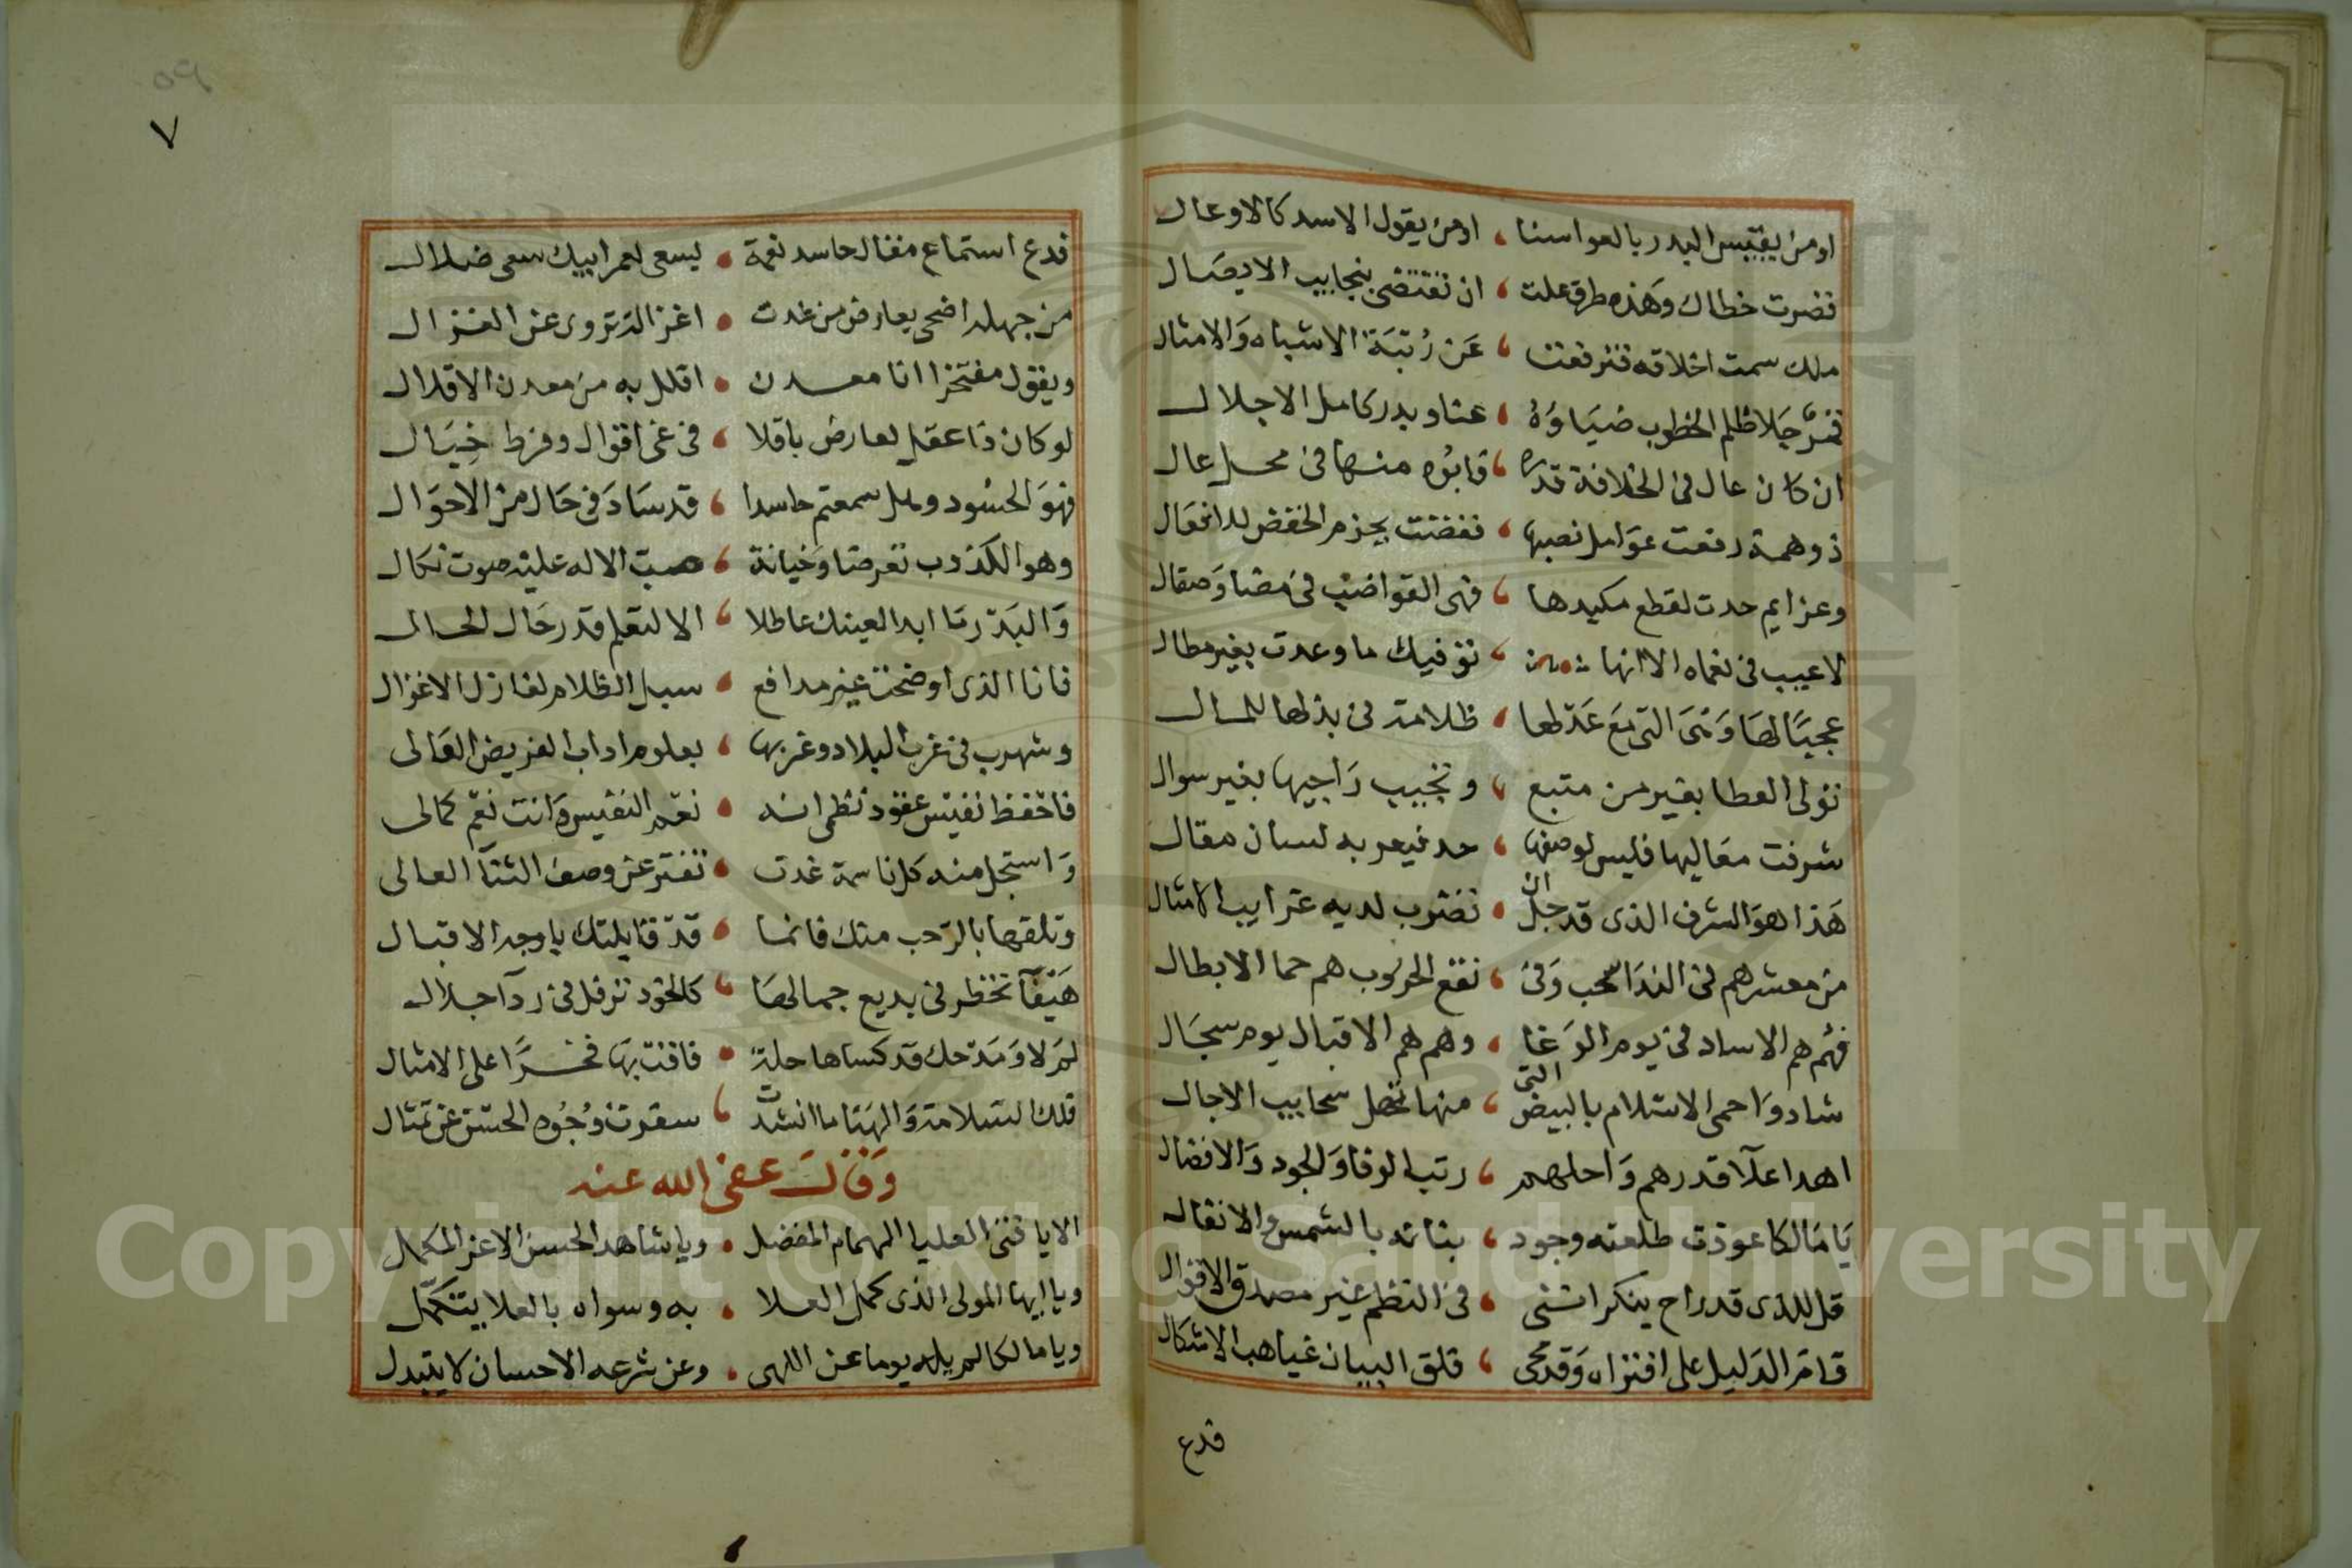 او من يقتبس البدر بالعوا سنا ، او من يقول الاسد كالاوعال
قصرت خطاك وهذه طرق علت ، ان تقتضى بنجايب الايصال
ملك سمت اخلاقه فترفعت ، عَن رُتبَة الاشباه وَالامثال
قمرٌ جَلا ظلم الخطوب ضيَاوُهُ ، عنا وبدر كامل الاجلال
ان كان عال فى الخلافة قدره ، فابوه منها فى محل عال
ذو همة رفعت عوَامل نصبها ، فقضت بجزم الخفض للافعَال
وعزايم حدت لقطع مكيدها ، فهى القواضب فى مضا وَصقال
لا عيب فى نعماه الا انها ، توفيك ما وعدت بغير مطال
عجبًا لهَا وَهىَ التى مَع عَدلها ، ظلامة فى بذلها للمال
تولى العطا بغير من متبع ، وتجيب رَاجيها بغير سوال
شرفت معَاليها فليس لوصفها ، حد فيعربه لسان مقال
هَذا هوَ الشرف الذى قد جل ان ، تضرب لديه غرايب الامثال
من معشر هم فى الندَا سحب وَفى ، نقع الحروب هم حما الابطال
فهُم هم الاساد فى يوم الوَغا ، وهم هم الاقبال يوم سجَال
شادوَا حمى الاسلام بالبيض التى ، منها تهطل سحايب الاجال
اهدا علآ قدرهم وَاحلهم ، رتب الوفا وَالجود وَالافضال
يَا مَالكا عوذت طلعته وجود ، بنانه بالشمس والانفال
قل للذى قد راح ينكر اننى ، فى النظم غير مصدق الاقوال
قامَ الدَليل على افتراه وَقد محى ، فلق البيان غياهب الاشكال
فدع
٧
فدع استماع مقال حاسد نعمة ، ليسعى لعمر ابيك سعى ضلال
من جهله اضحى يعارض من غدت ، اغزاله تروى عن الغزال
ويقول مفتخرا انا معدن ، اقلل به من معدن الاقلال
لو كان ذا عقل لعارض باقلا ، فى غى اقوال وفرط خيَال
فهوَ الحسود وهل سمعتم حاسدا ، قد سَادَ فى حَال من الاحوَال
وهو الكذوب تعرضا وَخيانة ، صبّ الاله عليْه صوت نكال
وَالبَدْر مَا ابدا لعينك عاطلا ، الا لتعلم قدر حَال الحالى
فانا الذى اوضحت غير مدافع ، سبل الظلام لغازل الاغزال
وشهرت فى غرب البلاد وغربها ، بعلوم اداب القريض الغالى
فاحفظ نفيس عقود نظمى انه ، نعم النفيس وَانت نعْم كمالى
وَاستجل منه كل ناسمة غدت ، تفتر عن وصف الثنآ العالى
وتلقها بالرّحب منك فانما ، قد قابلتك يا وجه الاقبال
هَيْفآ تخظر فى بديع جمالهَا ، كالخود ترفل فى ردآ جلال
لمَ لا وَمَدْحك قد كساها حلة ، فاقت بهَا فخرًا على الامثال
فلك السَلامة وَالهَنا ما انشدت ، سفرت وُجُوه الحسْن عن تمثال
وَقَالَ عفى الله عنه
الا يا فتى العليا الهمام المفضل ، ويا شاهد الحسن الاغر المكمل
ويا ايها المولى الذى كمل العلا ، به وسواه بالعلا يتكمّل
ويا مالكا لم يله يوما عن اللهى ، وعن شرعه الاحسان لا يتبدل
Copyright © King Saud University